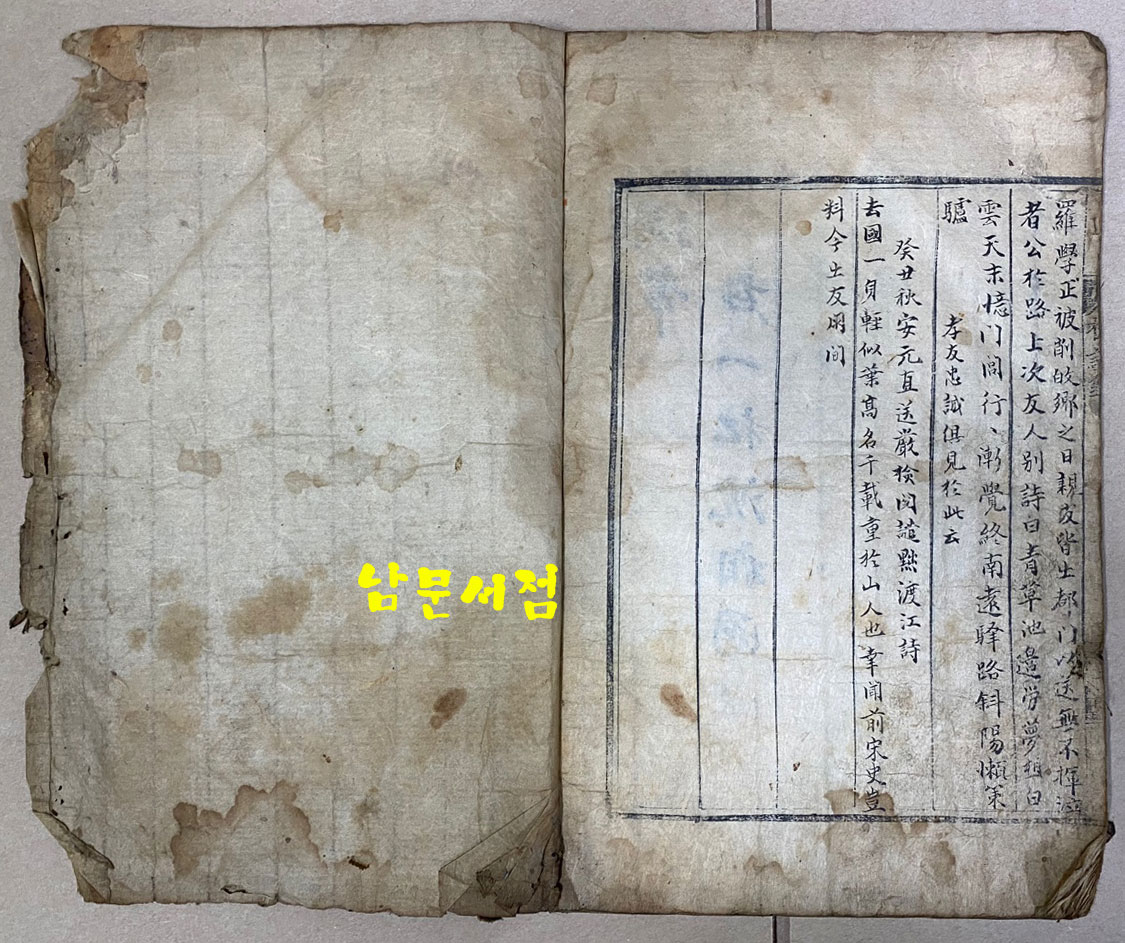 羅學正被削故鄉之日親友皆出都门以送無不揮淚
者公於路上次友人别詩曰青草池邊勞夢想白
雲天末憶门闾行、漸覺終南遠驿路斜陽懶策
驢
孝友忠誠俱見於此云
癸丑秋安元直送嚴
渡江詩
去國一身輕似葉高名千載重於山人也幸闻前宋史豈
料今出友朋间
남문서점